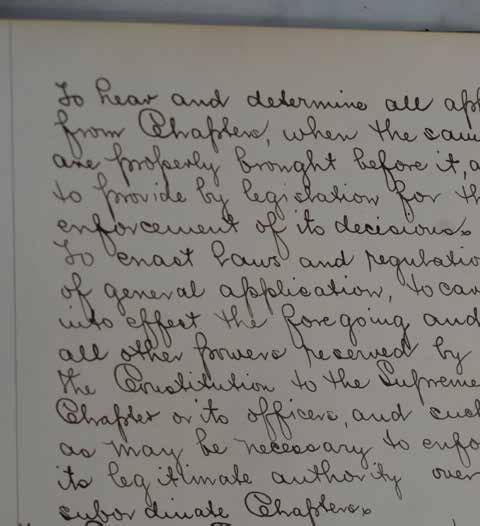 To hear and determine all
from Chapters, when the
are properly brought before it,
to provide by legislation for
enforcement of its decisions.
To enact Laws and
of general application, to
into effect the foregoing and
all other powers reserved by
the Constitution to the Supreme
Chapter or its officers, and
as may be necessary to
its legitimate authority over
subordinate Chapters.